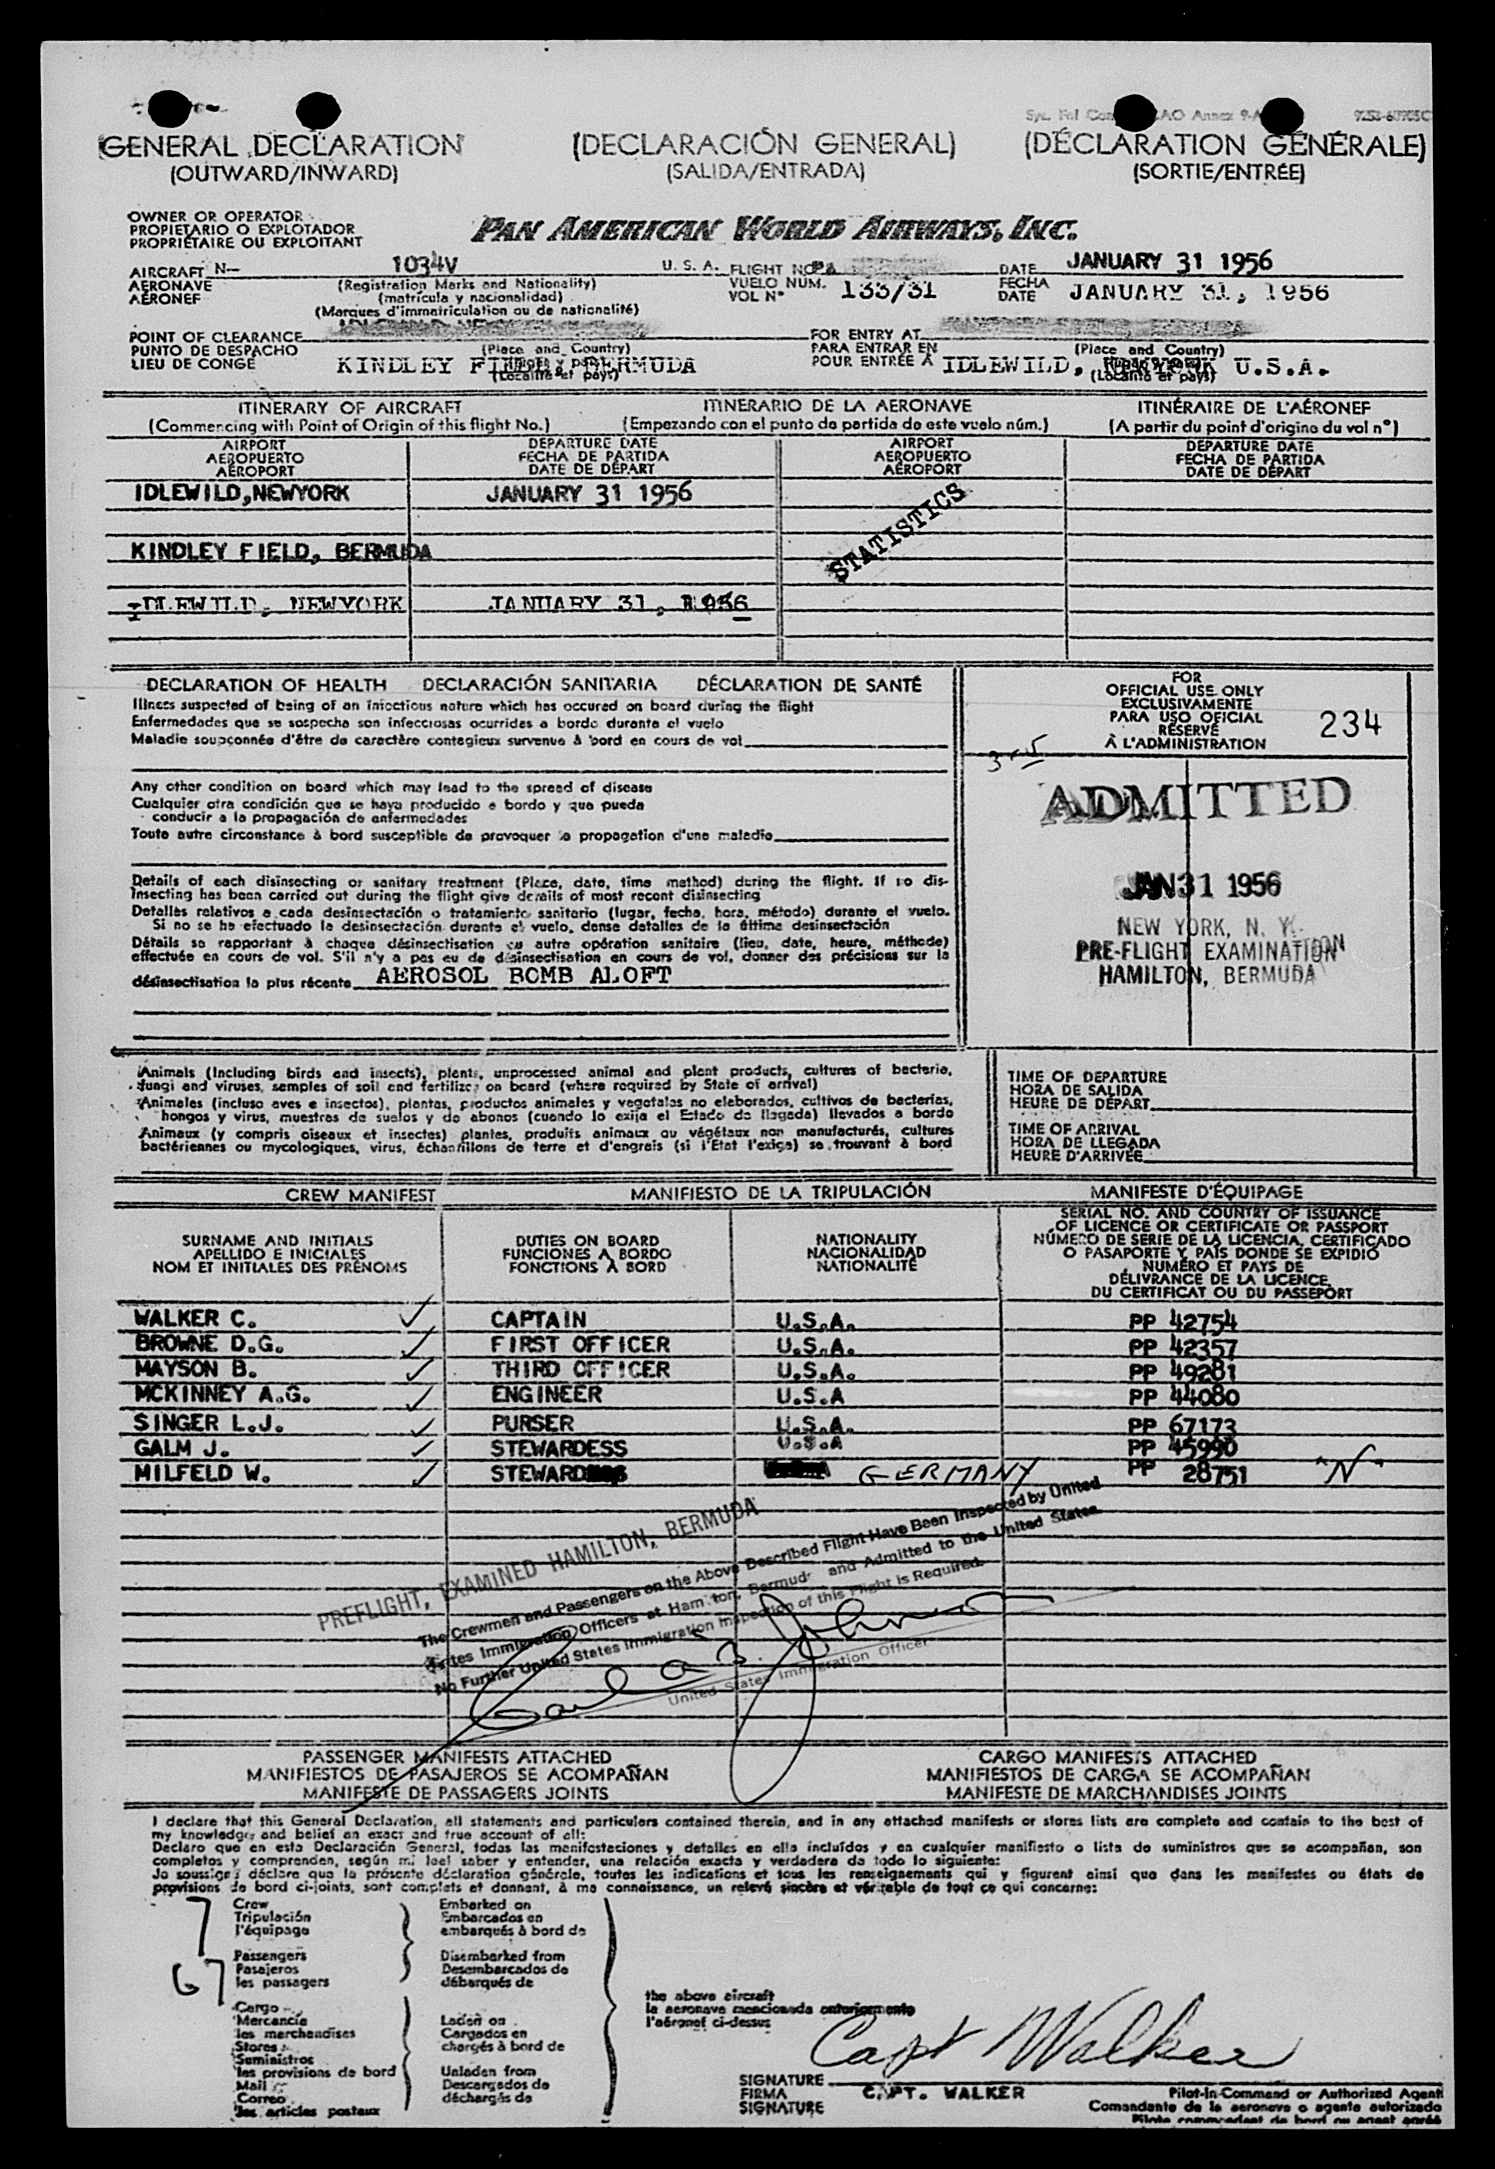 GENERAL DECLARATION (DECLARACIÓN GENERAL) (DÉCLARATION GÉNÉRALE)
(OUTWARD/INWARD) (SALIDA/ENTRADA) (SORTIE/ENTRÉE)
OWNER OR OPERATOR
PROPIETARIO O EXPLOTADOR
PROPRIÉTAIRE OU EXPLOITANT
PAN AMERICAN WORLD AIRWAYS, INC.
AIRCRAFT N- 1034V U. S. A. FLIGHT NO. DATE JANUARY 31 1956
AERONAVE (Registration Marks and Nationality) VUELO NUM. 133/31 FECHA JANUARY 31, 1956
AÉRONEF (matrícula y nacionalidad) VOL Nº DATE
(Marques d'immatriculation ou de nationalité)
POINT OF CLEARANCE FOR ENTRY AT
PUNTO DE DESPACHO (Place and Country) PARA ENTRAR EN (Place and Country)
LIEU DE CONGÉ KINDLEY FIELD, BERMUDA POUR ENTRÉE À IDLEWILD, U.S.A.
(Localité et pays) (Localité et pays)
ITINERARY OF AIRCRAFT ITINERARIO DE LA AERONAVE ITINÉRAIRE DE L'AÉRONEF
(Commencing with Point of Origin of this flight No.) (Empezando con el punto de partida de este vuelo núm.) (A partir du point d'origine du vol nº)
AIRPORT DEPARTURE DATE AIRPORT DEPARTURE DATE
AEROPUERTO FECHA DE PARTIDA AEROPUERTO FECHA DE PARTIDA
AÉROPORT DATE DE DÉPART AÉROPORT DATE DE DÉPART
IDLEWILD,NEWYORK JANUARY 31 1956
STATISTICS
KINDLEY FIELD, BERMUDA
IDLEWILD, NEWYORK JANUARY 31, 1956
DECLARATION OF HEALTH DECLARACIÓN SANITARIA DÉCLARATION DE SANTÉ
Illness suspected of being of an infectious nature which has occured on board during the flight
Enfermedades que se sospecha son infecciosas ocurridas a bordo durante el vuelo
Maladie soupçonnée d'être de caractère contagieux survenue à bord en cours de vol
Any other condition on board which may lead to the spread of disease
Cualquier otra condición que se haya producido a bordo y que pueda
conducir a la propagación de enfermedades
Toute autre circonstance à bord susceptible de provoquer la propagation d'une maladie
Details of each disinsecting or sanitary treatment (Place, date, time method) during the flight. If no dis-
insecting has been carried out during the flight give details of most recent disinsecting
Detalles relativos a cada desinsectación o tratamiento sanitario (lugar, fecha, hora, método) durante el vuelo.
Si no se ha efectuado la desinsectación durante el vuelo, dense detalles de la última desinsectación
Détails se rapportant à chaque désinsectisation ou autre opération sanitaire (lieu, date, heure, méthode)
effectuée en cours de vol. S'il n'y a pas eu de désinsectisation en cours de vol, donner des précisions sur la
désinsectisation la plus récente AEROSOL BOMB ALOFT
FOR
OFFICIAL USE ONLY
EXCLUSIVAMENTE
PARA USO OFICIAL
RÉSERVÉ
À L'ADMINISTRATION
234
ADMITTED
JAN 31 1956
NEW YORK, N. Y.
PRE-FLIGHT EXAMINATION
HAMILTON, BERMUDA
Animals (Including birds and insects), plants, unprocessed animal and plant products, cultures of bacteria,
fungi and viruses, samples of soil and fertilizer on board (where required by State of arrival)
Animales (incluso aves e insectos), plantas, productos animales y vegetales no elaborados, cultivos de bacterias,
hongos y virus, muestras de suelos y de abonos (cuando lo exija el Estado de llegada) llevados a bordo
Animaux (y compris oiseaux et insectes) plantes, produits animaux ou végétaux non manufacturés, cultures
bactériennes ou mycologiques, virus, échantillons de terre et d'engrais (si l'Etat l'exige) se trouvant à bord
TIME OF DEPARTURE
HORA DE SALIDA
HEURE DE DÉPART
TIME OF ARRIVAL
HORA DE LLEGADA
HEURE D'ARRIVÉE
CREW MANIFEST MANIFIESTO DE LA TRIPULACIÓN MANIFESTE D'ÉQUIPAGE
SURNAME AND INITIALS
APELLIDO E INICIALES
NOM ET INITIALES DES PRÉNOMS
DUTIES ON BOARD
FUNCIONES A BORDO
FONCTIONS À BORD
NATIONALITY
NACIONALIDAD
NATIONALITÉ
SERIAL NO. AND COUNTRY OF ISSUANCE
OF LICENCE OR CERTIFICATE OR PASSPORT
NÚMERO DE SERIE DE LA LICENCIA, CERTIFICADO
O PASAPORTE Y PAÍS DONDE SE EXPIDIÓ
NUMÉRO ET PAYS DE
DÉLIVRANCE DE LA LICENCE,
DU CERTIFICAT OU DU PASSEPORT
WALKER C. CAPTAIN U.S.A. PP 42754
BROWNE D.G. FIRST OFFICER U.S.A. PP 42357
MAYSON B. THIRD OFFICER U.S.A. PP 49281
MCKINNEY A.G. ENGINEER U.S.A PP 44080
SINGER L.J. PURSER U.S.A. PP 67173
GALM J. STEWARDESS U.S.A PP 45990
MILFELD W. STEWARD GERMANY PP 28751 "N"
PREFLIGHT, EXAMINED HAMILTON, BERMUDA
The Crewmen and Passengers on the Above Described Flight Have Been Inspected by United
States Immigration Officers at Hamilton, Bermuda and Admitted to the United States.
No Further United States Immigration Inspection of this Flight is Required.
United States Immigration Officer
PASSENGER MANIFESTS ATTACHED CARGO MANIFESTS ATTACHED
MANIFIESTOS DE PASAJEROS SE ACOMPAÑAN MANIFIESTOS DE CARGA SE ACOMPAÑAN
MANIFESTE DE PASSAGERS JOINTS MANIFESTE DE MARCHANDISES JOINTS
I declare that this General Declaration, all statements and particulars contained therein, and in any attached manifests or stores lists are complete and contain to the best of
my knowledge and belief an exact and true account of all:
Declaro que en esta Declaración General, todas las manifestaciones y detalles en ella incluídos y en cualquier manifiesto o lista de suministros que se acompañan, son
completos y comprenden, según mi leal saber y entender, una relación exacta y verdadera de todo lo siguiente:
Je soussigné déclare que la présente déclaration générale, toutes les indications et tous les renseignements qui y figurent ainsi que dans les manifestes ou états de
provisions de bord ci-joints, sont complets et donnent, à ma connaissance, un relevé sincère et véritable de tout ce qui concerne:
7 Crew Embarked on
Tripulación Embarcados en
l'équipage embarqués à bord de
67 Passengers Disembarked from
Pasajeros Desembarcados de
les passagers débarqués de
Cargo
Mercancía Laden on
les marchandises Cargados en
Stores chargés à bord de
Suministros
les provisions de bord Unladen from
Mail Descargados de
Correo déchargés de
les articles postaux
the above aircraft
la aeronave mencionada anteriormente
l'aéronef ci-dessus
Capt Walker
SIGNATURE
FIRMA CAPT. WALKER
SIGNATURE
Pilot-In-Command or Authorized Agent
Comandante de la aeronave o agente autorizado
Pilote commandant de bord ou agent agréé